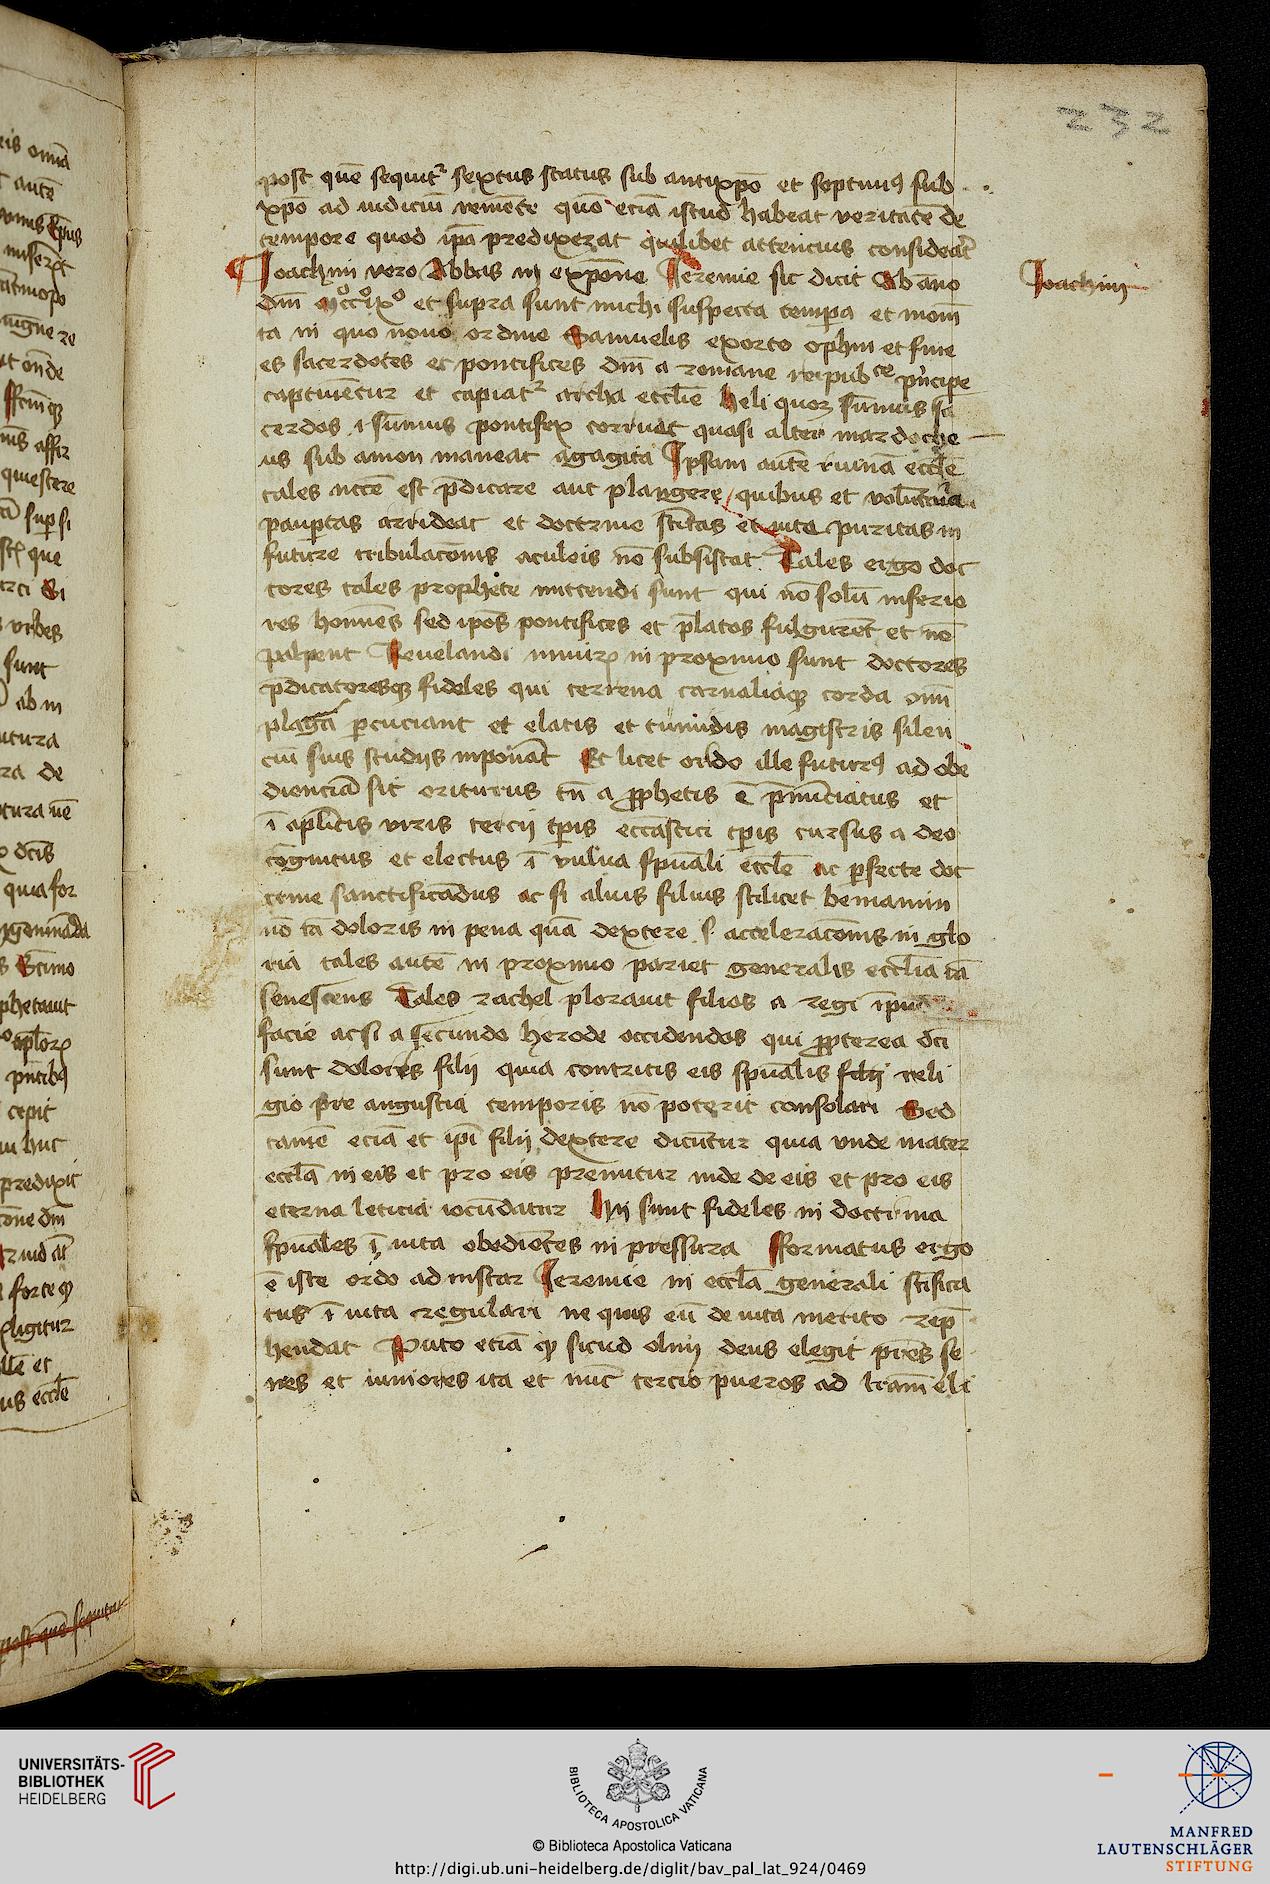 232
post quē sequit² sextus status sub antixp̄o et septimꝰ sub
xp̄o ad iudiciū veniēte quō eciā istud habeat veritatē de
tempore quod ip̄a predixerat quilibet attencius consideat
Joachim vero Abbas in expōne Jeremie sic dicit Ab āno
Joachim
dm̄ et supra sunt michi suspecta temp̄a et mom̄
ta in quo nouo ordine Samuelis exorto ophni et fine
es sacerdotes et pontifices dm̄ a romane reipub^ce p̄ncipe
captiuentur et capiat² archa eccl̄ie heli quoꝫ sūmus sa
cerdos .i. sūmus pontifex corruat quasi alter mardoche
us sub amon maneat agagita Ipsam autē ruinā eccl̄e
tales nccē est p̄dicare aut plangere quibus et
paup̄tas arrideat et doctrine sc̄itas et uite puritas in
future tribulacōnis aculeis nō subsistat Tales ergo doc
tores tales prophete mittendi sunt qui nō solū inferio
res homines sed ip̄os pontifices et p̄latos fulgurēt et nō
palpent Reuelandi in proximo sunt doctores
p̄dicatoresqꝫ fideles qui terrena carnaliaqꝫ corda om̄i
plaga p̄cuciant et elatis et tumidis magistris silen
ciū suis studijs inponāt Et licet ordo ille futurꝰ ad obe
dienciā sit oriturus tn̄ a ꝓphetis ē p̄nūciatus et
ī apl̄icis viris tercij tp̄is eccāstici tp̄is cursus a deo
cōgnitus et electus ī vulua sp̄uali eccl̄e ac p̄fecte doc
trine sanctificādus ac si alius filius scilicet beniamin
nō tā doloris in pena quā dextere .s. acceleracōnis in glo
ria tales autē in proximo pariet generalis eccl̄ia iā
senescens Tales rachel plorauit filios a regi
facie acsi a secundo herode occidendos qui ꝓpterea dc̄i
sunt doloris filij quia contritis eis sp̄ualis filij reli
gio pre angustia temporis nō poterit consolari Sed
tamē eciā et ip̄i filij dextere dicūtur quia vnde mater
eccl̄a in eis et pro eis premitur inde de eis et pro eis
eterna leticia iocūdatur hij sunt fideles in doctrina
sp̄uales ī uita obediētes in pressura fformatus ergo
ē iste ordo ad instar Jeremie in eccl̄a generali sc̄ifica
tus ī uita regulari ne quis eū de uita merito rep̄
hendat Puto eciā qꝫ sicud olim deus elegit pr̄es se
nes et iuniores ita et nūc tercio pueros ad
UNIVERSITÄTS-
BIBLIOTHEK
HEIDELBERG
BIBLIOTECA APOSTOLICA VATICANA
© Biblioteca Apostolica Vaticana
http://digi.ub.uni-heidelberg.de/diglit/bav_pal_lat_924/0469
MANFRED
LAUTENSCHLÄGER
STIFTUNG